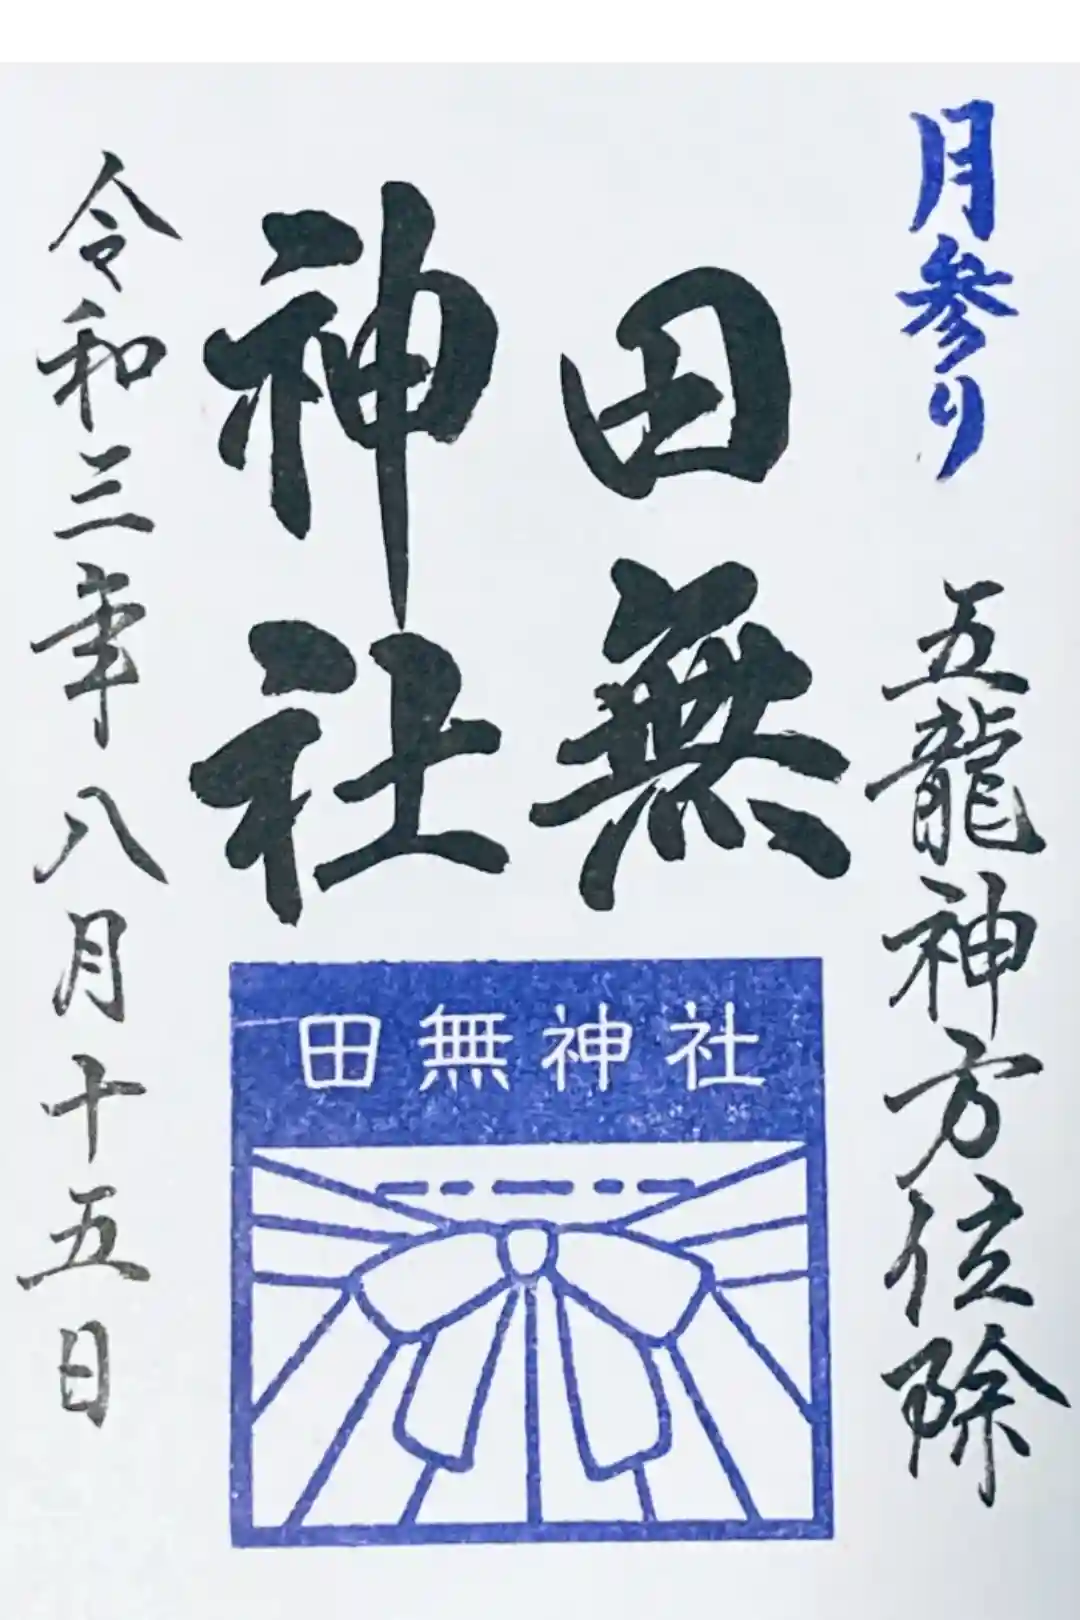 月参り
五龍神方位除
田無
神社
田無神社
令和三年八月十五日